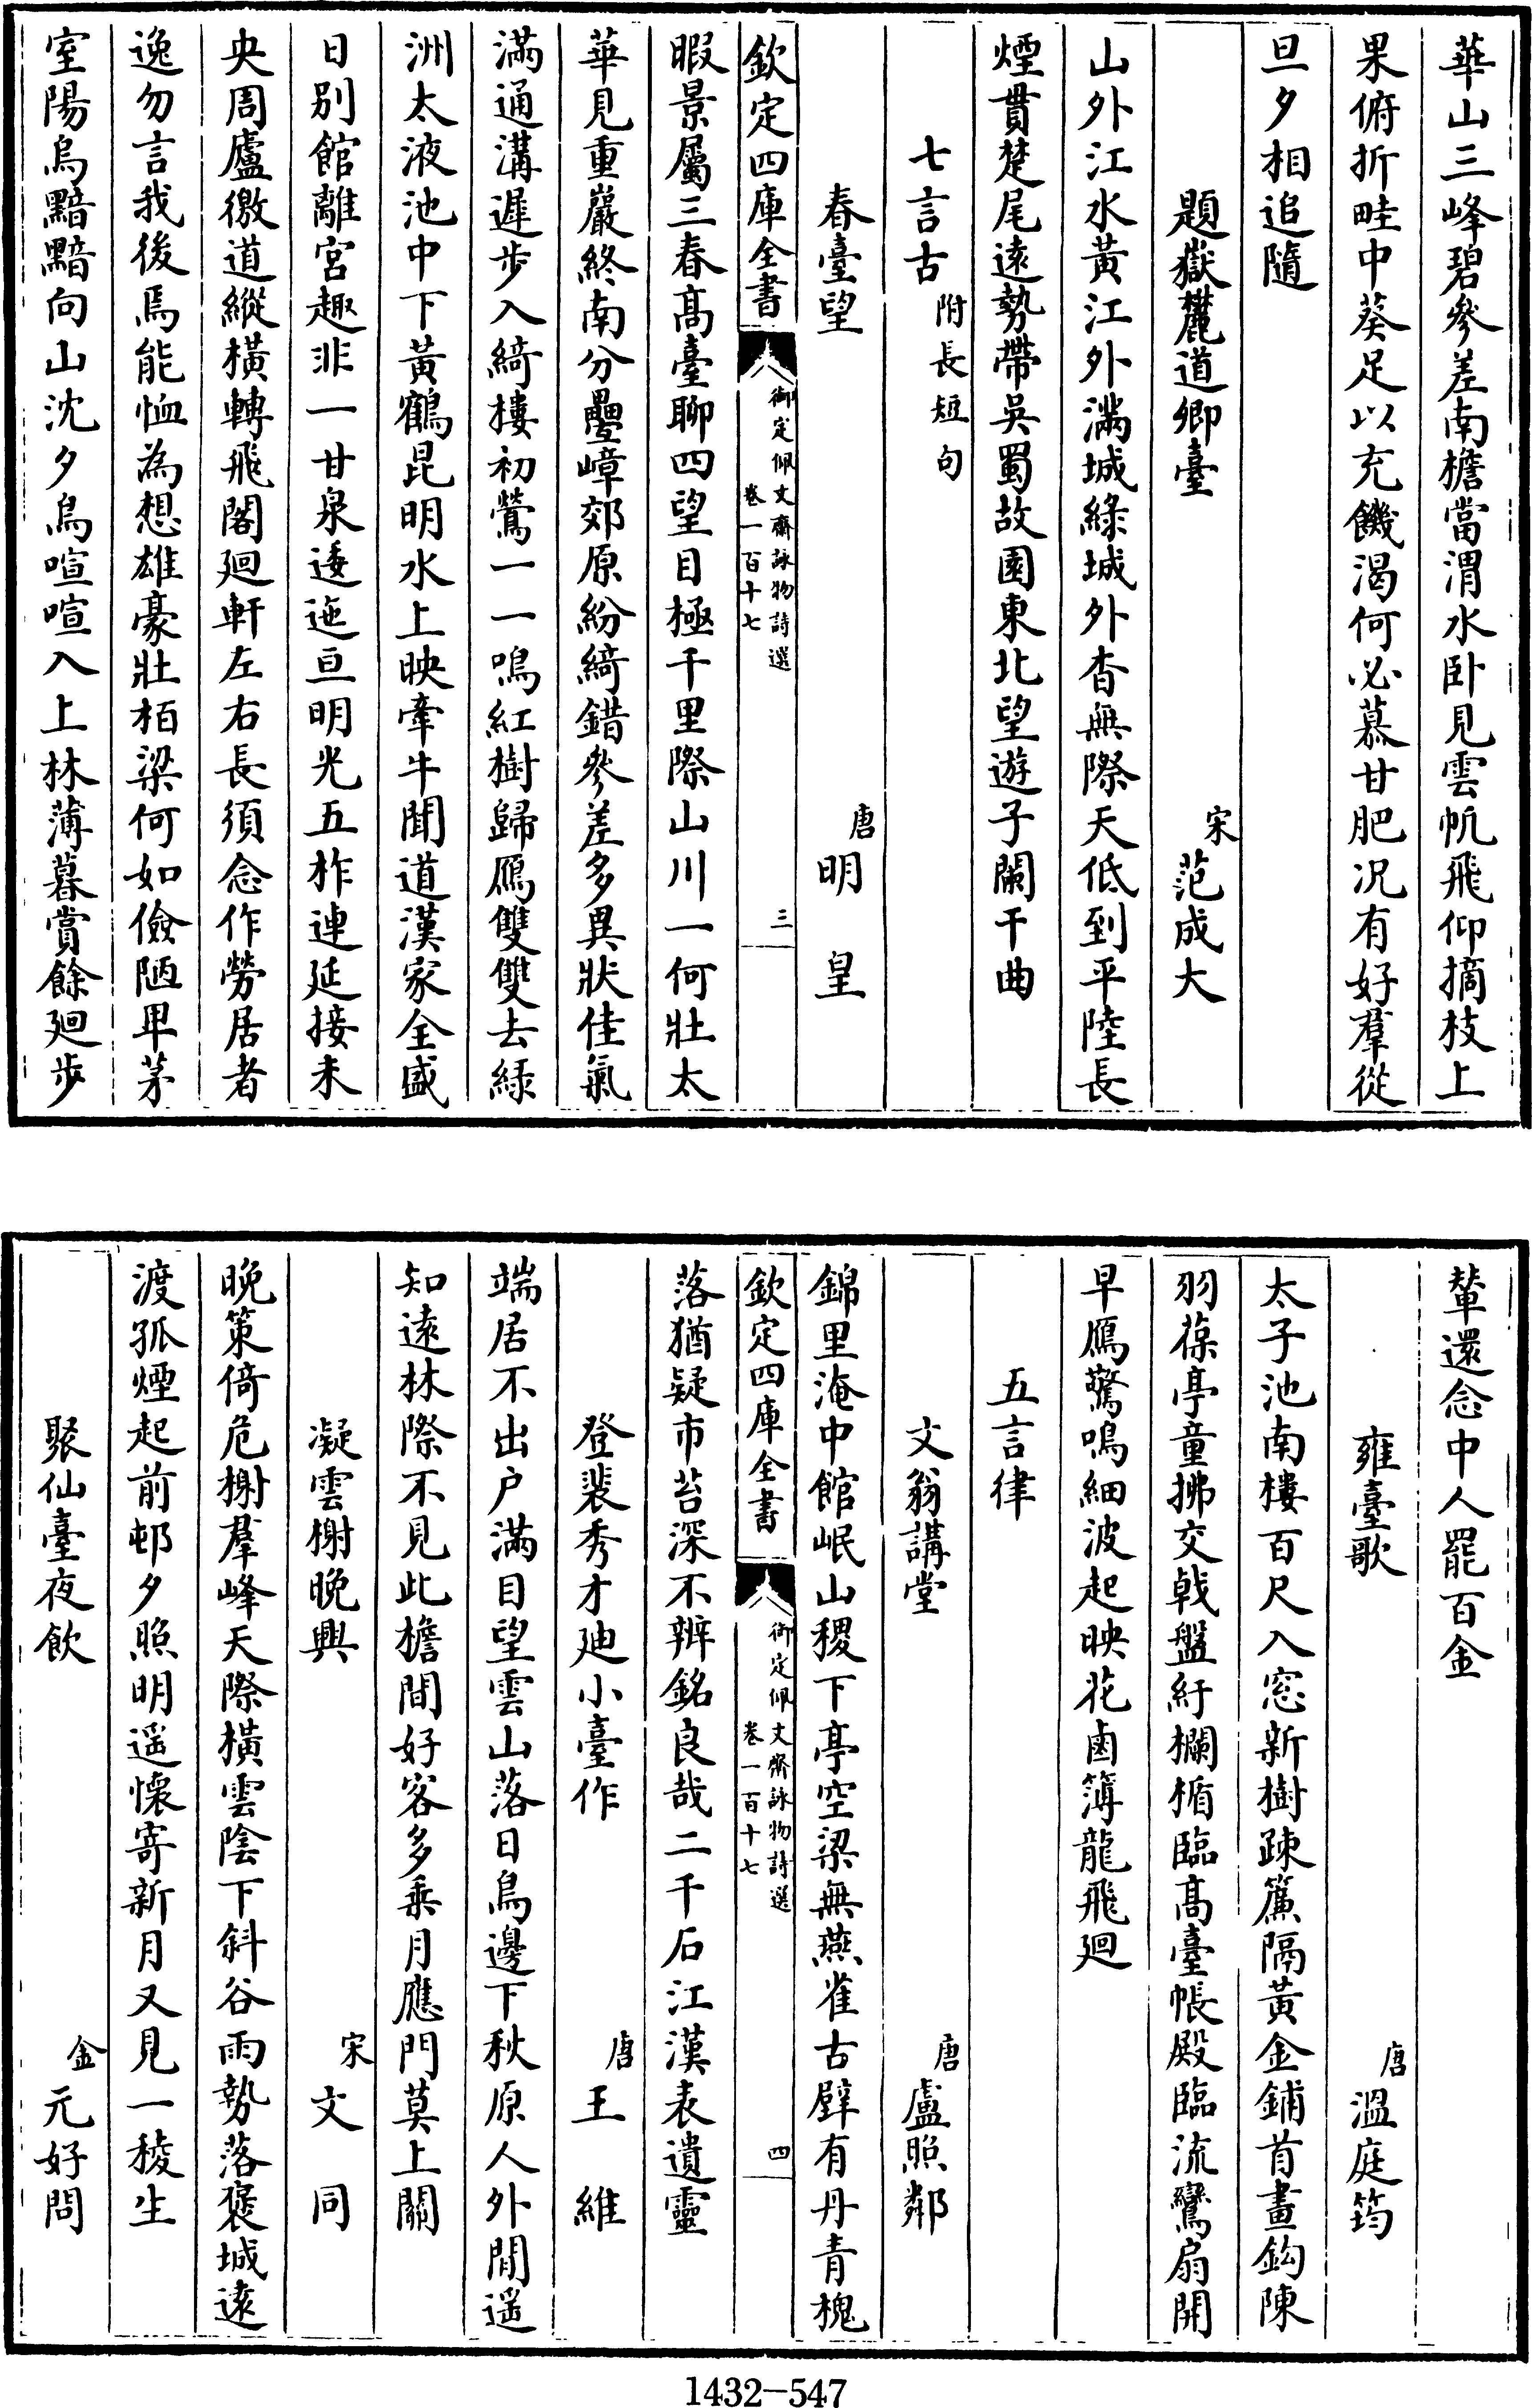 華山三峰碧參差南檐當渭水卧見雲帆飛仰摘枝上
果俯折畦中葵足以充饑渴何必慕甘肥况有好羣從
旦夕相追隨
題嶽麓道鄉臺 宋范成大
山外江水黃江外滿城綠城外杳無際天低到平陸長
煙貫楚尾遠勢帶吳蜀故園東北望遊子闌干曲
七言古附長短句
春臺望 唐明皇
欽定四庫全書 御定佩文齋詠物詩選 卷一百十七 三
暇景屬三春高臺聊四望目極千里際山川一何壯太
華見重巖終南分疊嶂郊原紛綺錯參差多異狀佳氣
滿通溝遲步入綺樓初鶯一一鳴紅樹歸雁雙雙去綠
洲太液池中下黃鶴昆明水上映牽牛聞道漢家全盛
日別館離宮趣非一甘泉逶迤亘明光五柞連延接未
央周廬徼道縱橫轉飛閣廻軒左右長須念作勞居者
逸勿言我後焉能恤為想雄豪壯栢梁何如儉陋卑茅
室陽烏黯黯向山沈夕鳥喧喧入上林薄暮賞餘廻步
輦還念中人罷百金
雍臺歌 唐溫庭筠
太子池南樓百尺入窓新樹疎簾隔黃金鋪首畫鈎陳
羽葆亭童拂交戟盤紆欄楯臨高臺帳殿臨流鸞扇開
早雁驚鳴細波起映花鹵簿龍飛廻
五言律
文翁講堂 唐盧照鄰
錦里淹中館岷山稷下亭空梁無燕雀古壁有丹青槐
欽定四庫全書 御定佩文齋詠物詩選 卷一百十七 四
落猶疑市苔深不辨銘良哉二千石江漢表遺靈
登裴秀才迪小臺作 唐王維
端居不出户滿目望雲山落日鳥邊下秋原人外閒遥
知遠林際不見此檐間好客多乘月應門莫上關
凝雲榭晚興 宋文同
晚策倚危榭羣峰天際橫雲陰下斜谷雨勢落褒城遠
渡孤煙起前邨夕照明遥懷寄新月又見一稜生
聚仙臺夜飲 金元好問
1432-547